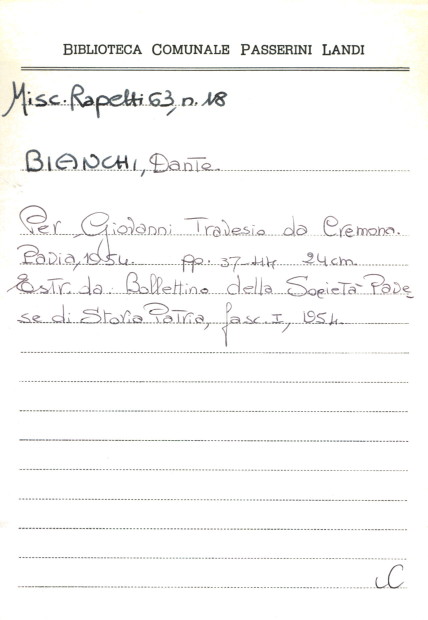 BIBLIOTECA COMUNALE PASSERINI LANDI
Misc. Rapetti 63, n. 18
BIANCHI, Dante.
Per Giovanni Travesio da Cremona.
Pavia, 1954. pp. 37-44 24 cm.
Estr. da Bollettino della Società Pave
se di Storia Patria, fasc. I, 1954.